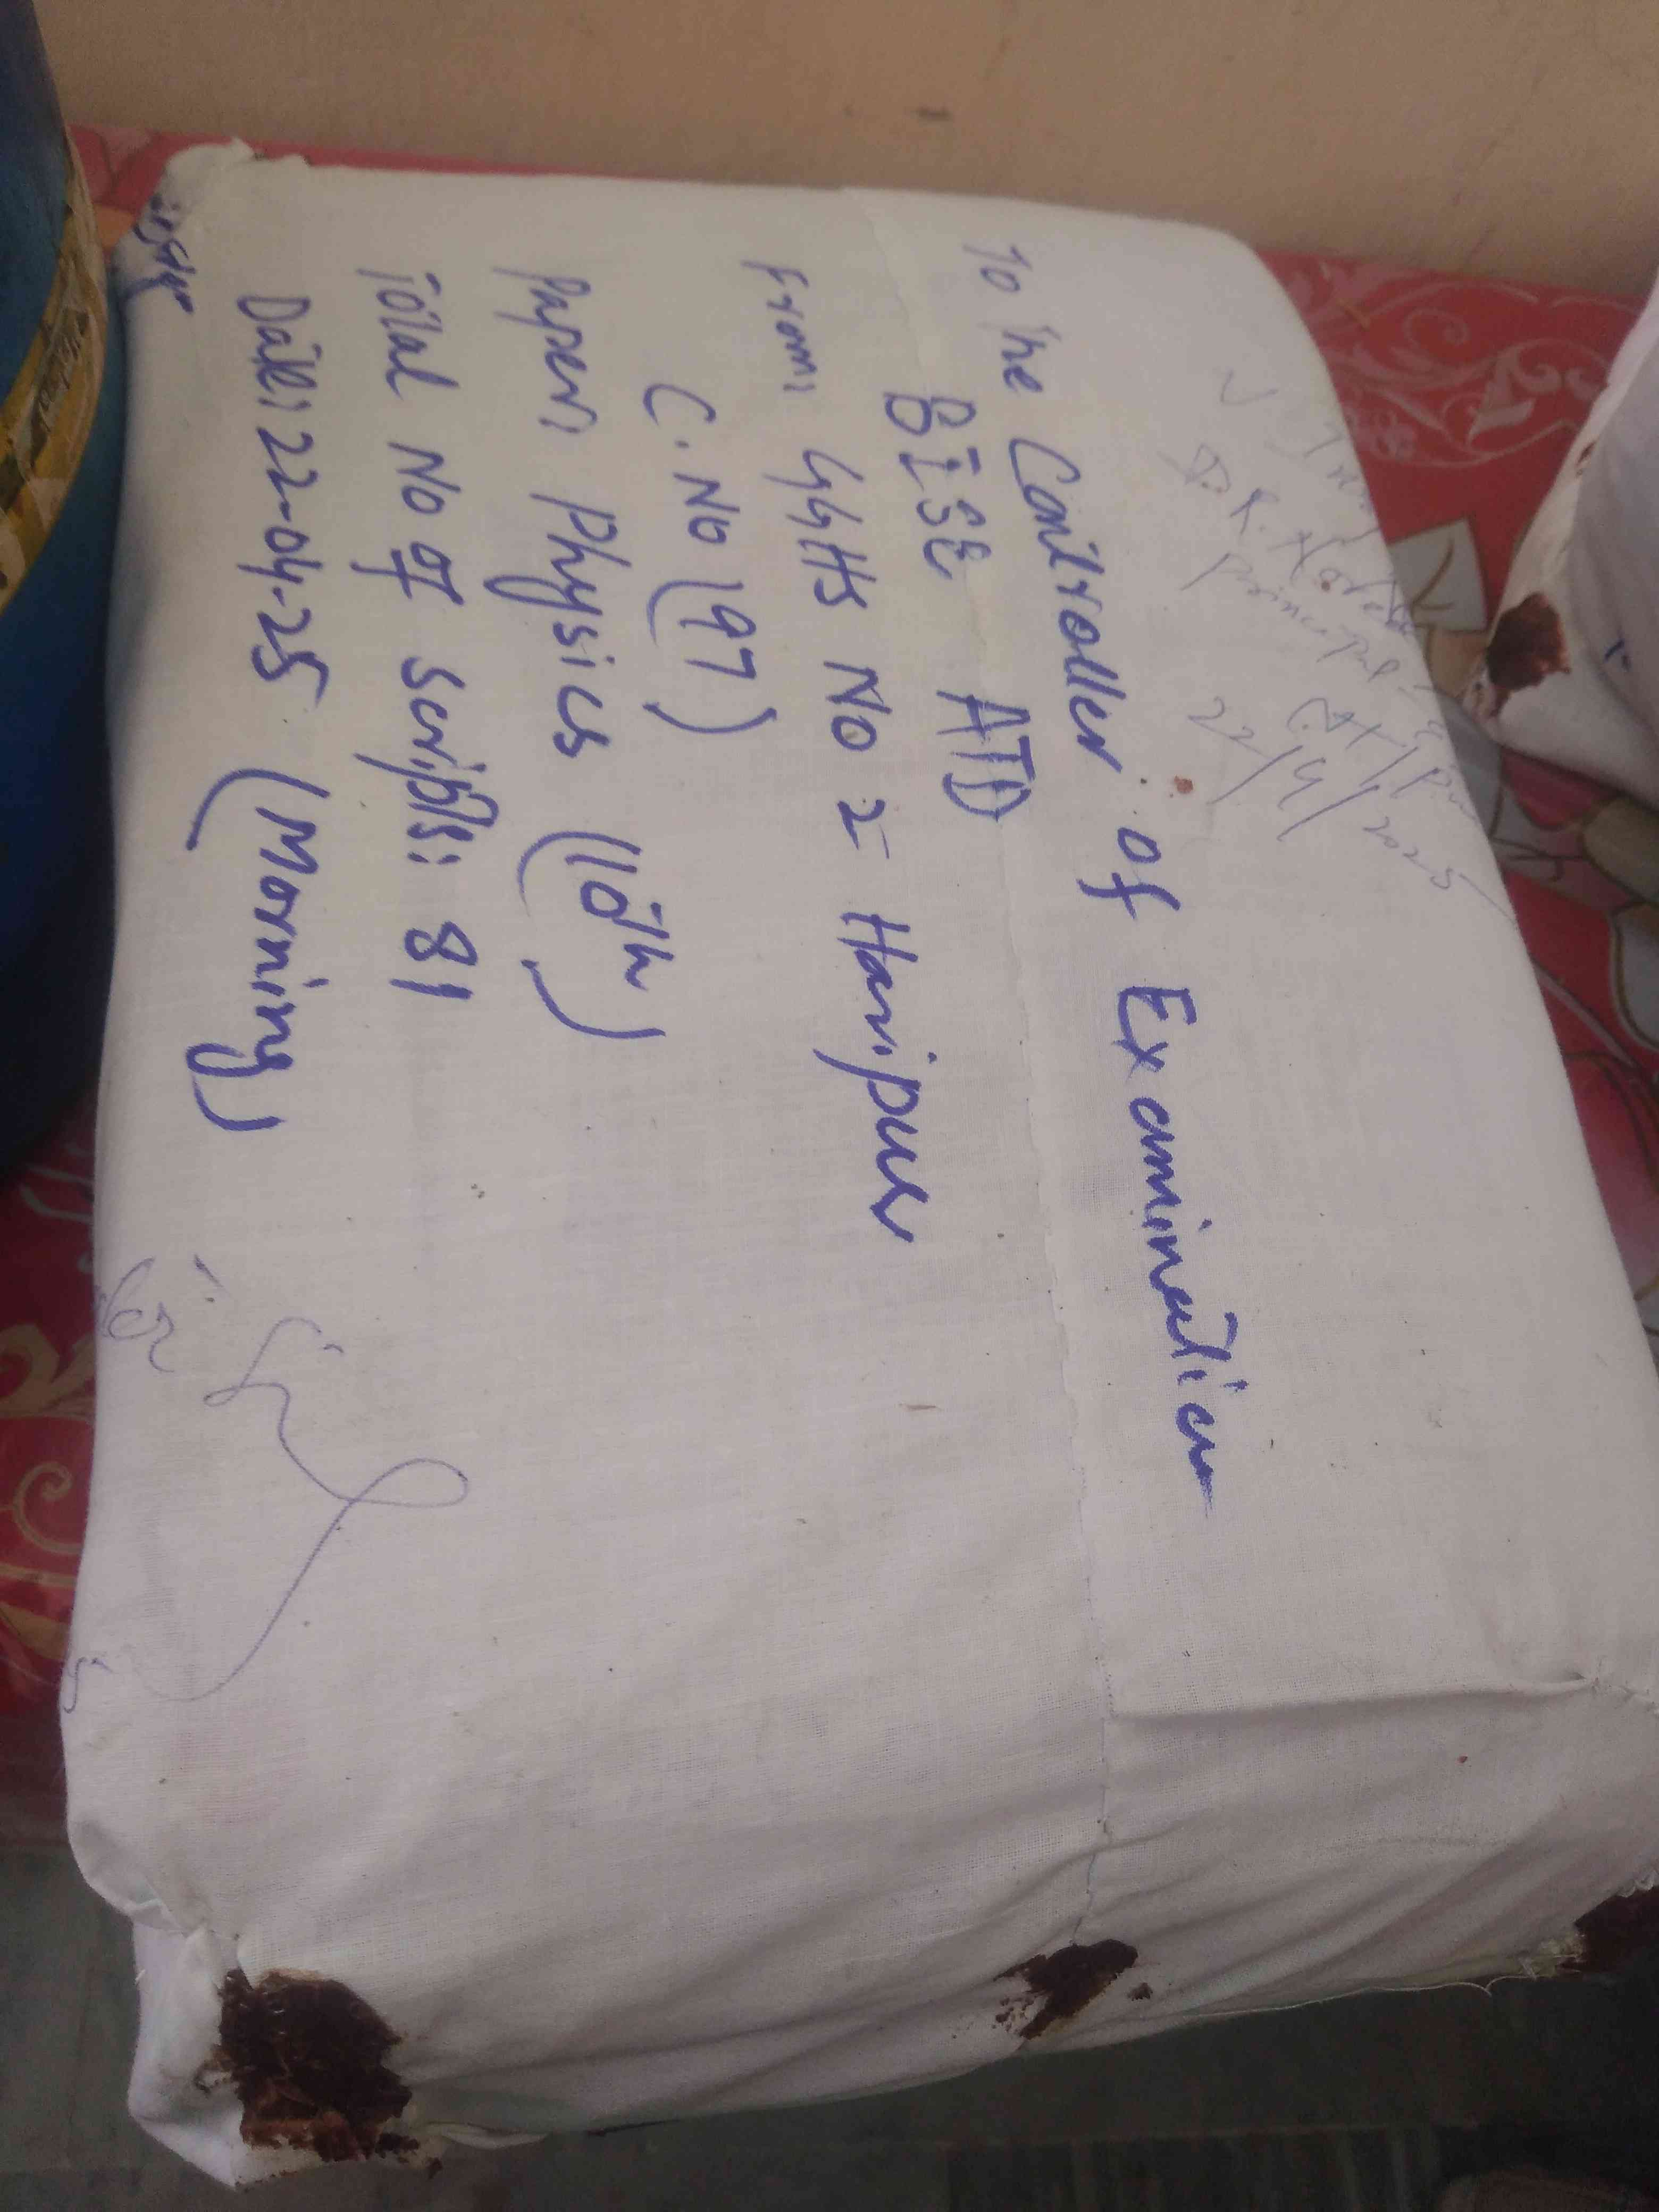 To the Controller of Examination
BISE ATD
From: GGHS No 2 Haripur
C. No (97)
Paper: Physics (10th)
Total No of Scripts: 81
Date: 22-04-25 (Morning)
22/4/2025